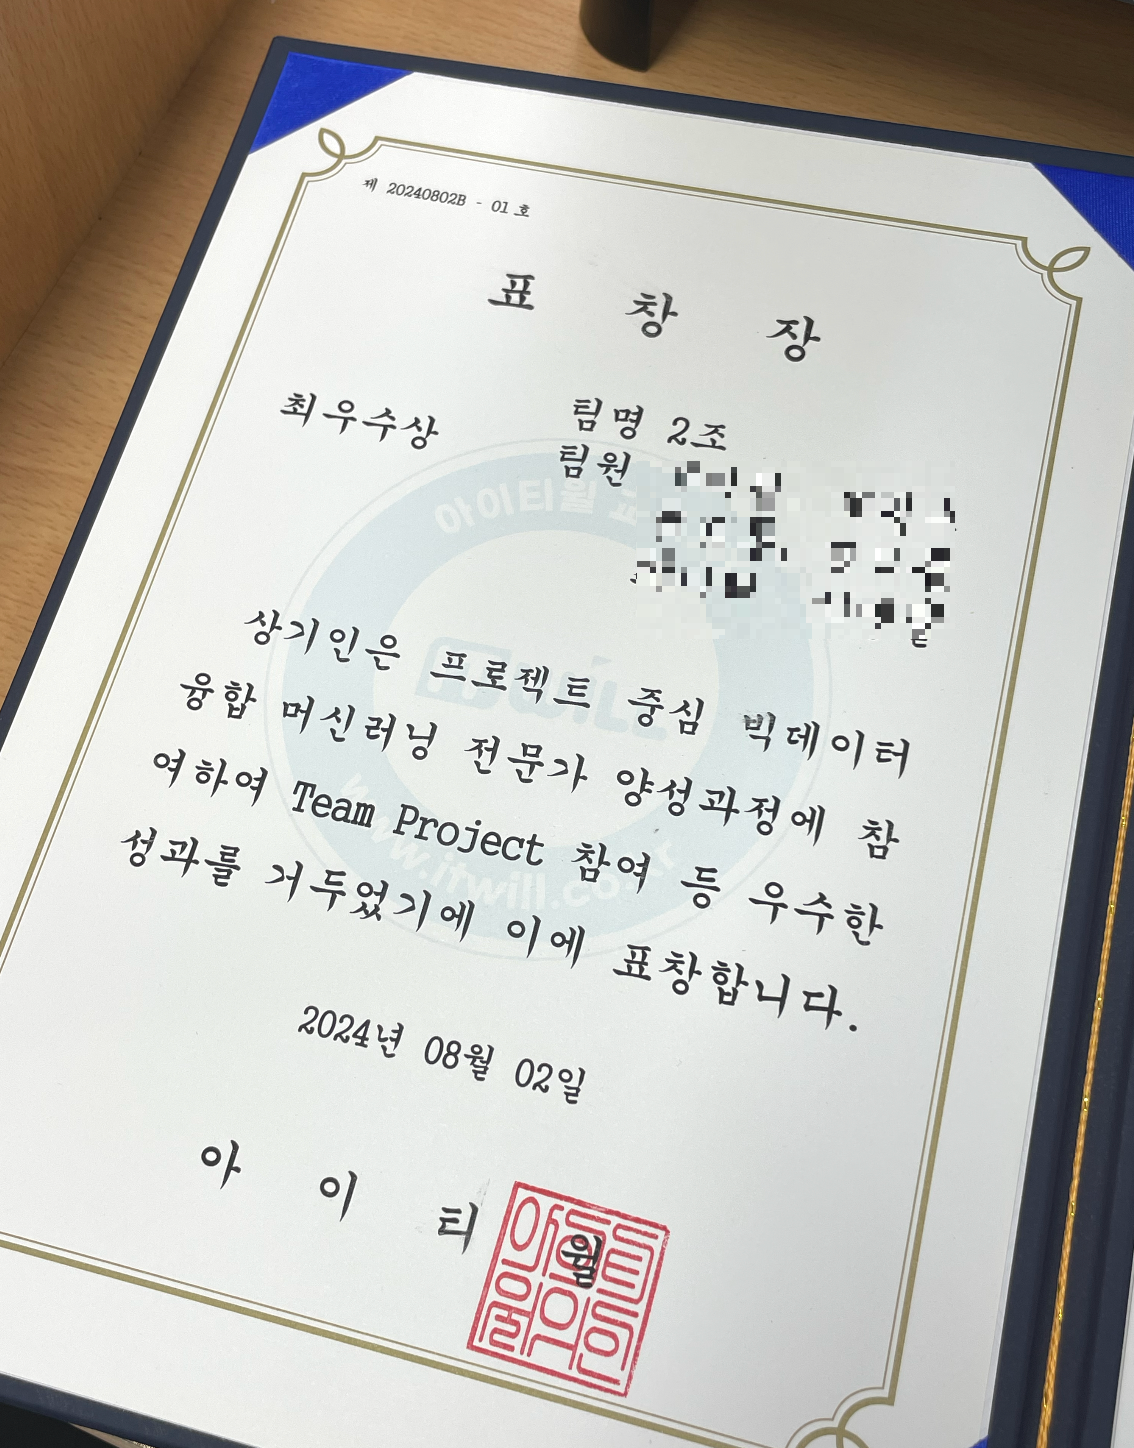 제 20240802B - 01 호
표 창 장
최우수상
팀명 2조
팀원
상기인은 프로젝트 중심 빅데이터
융합 머신러닝 전문가 양성과정에 참
여하여 Team Project 참여 등 우수한
성과를 거두었기에 이에 표창합니다.
2024년 08월 02일
아 이 티 윌
아이티윌 교
itwill
www.itwill.co.kr